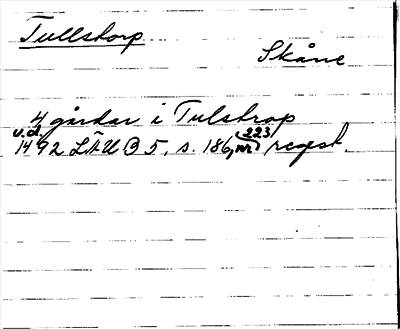 Tullstorp
Skåne
4 gårdar i Tulstrop
u.d. 223
1492 LÄU B 5, s. 186, nr regest.